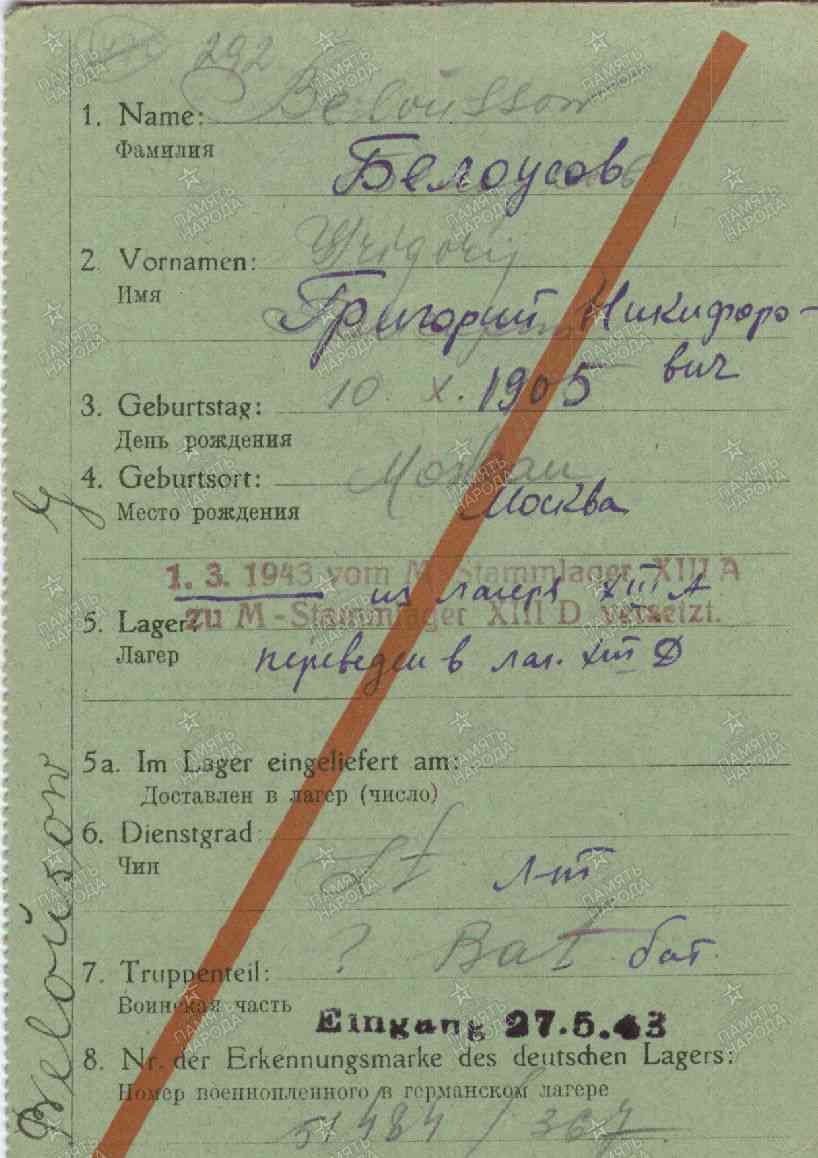 292
1. Name: Beloussow
Фамилия
Белоусов
2. Vornamen: Grigorij
Имя
Григорий Никифоро-
вич
3. Geburtstag: 10. X. 1905
День рождения
4. Geburtsort: Moskau
Место рождения
Москва
1. 3. 1943 vom M-Stammlager XIII A
из лагеря XIII A
5. Lager: zu M-Stammlager XIII D versetzt.
Лагер
переведен в лаг. XIII D
5a. Im Lager eingeliefert am:
Доставлен в лагер (число)
6. Dienstgrad: Lt
Чин
л-т
7. Truppenteil: ? Bat бат.
Воинская часть
Eingang 27.5.43
8. Nr. der Erkennungsmarke des deutschen Lagers:
Номер военнопленного в германском лагере
51484 / 367
Belousow
ПАМЯТЬ НАРОДА